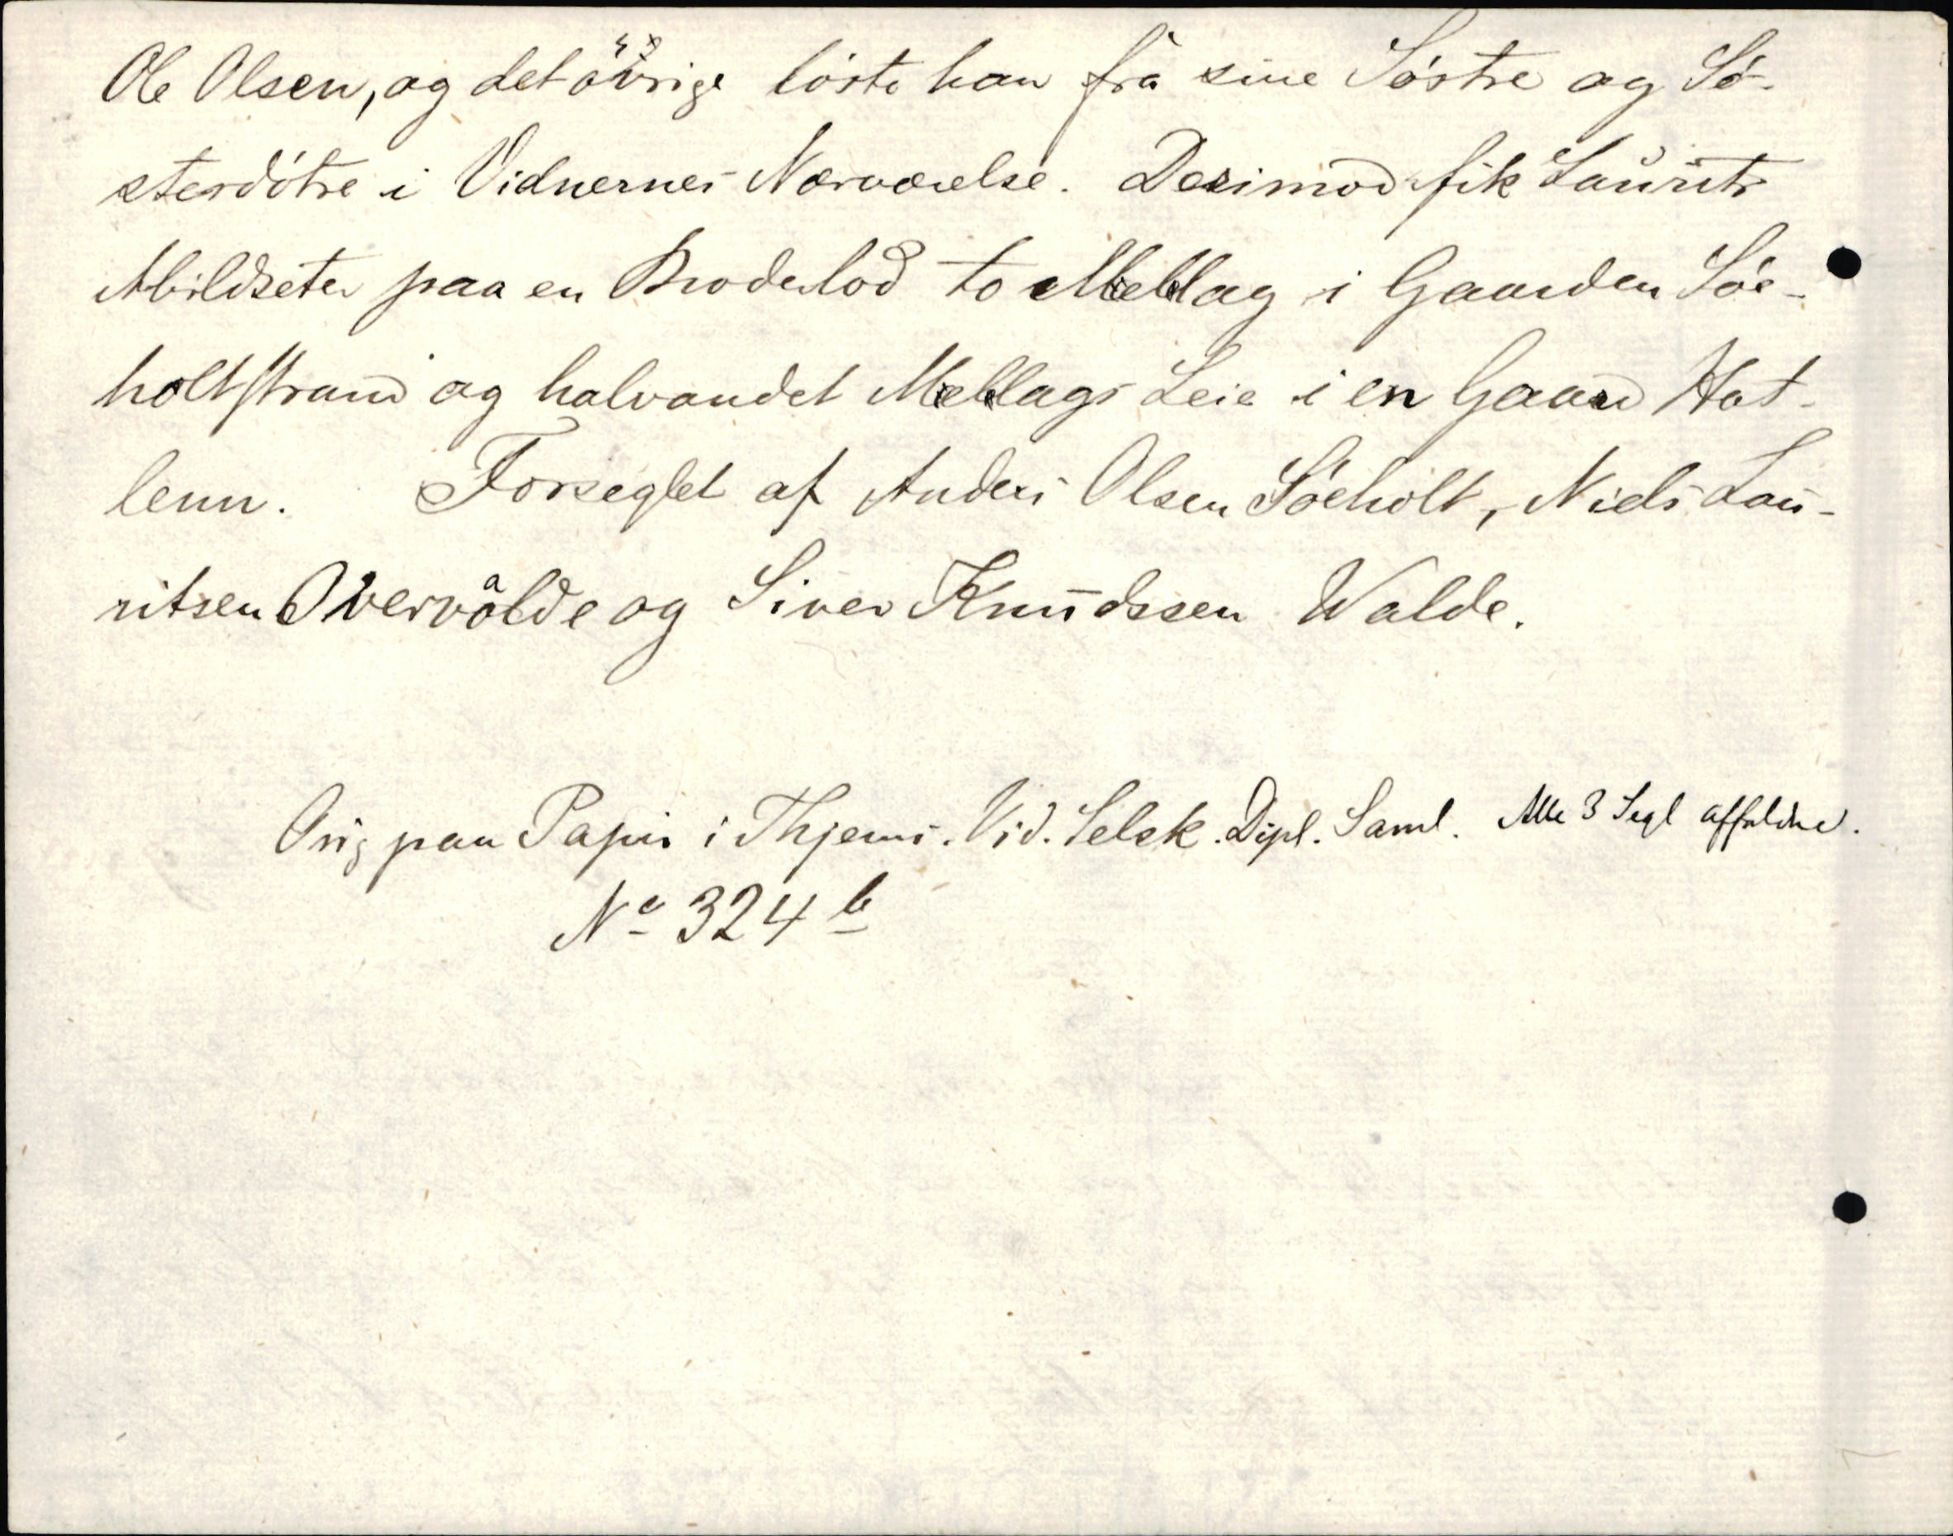 Ole Olsen, og det övrige löste han fra sine Söstre og Sö-
sterdötre i Vidnernes Nærværelse. Derimod fik Laurits
Mildseter paa en Broderlod to Mellag i Gaarden Söe-
holtstrand og halvandet Mellags Leie i en Gaard Hat-
lenn. Forseglet af Anders Olsen Söeholt, Niels Lau-
ritsen Overvålde og Siver Knudssen Walde.
Orig paa Papir i Thjems. Vid. Selsk. Dipl. Saml. Alle 3 Segl affaldne.
No 324 b